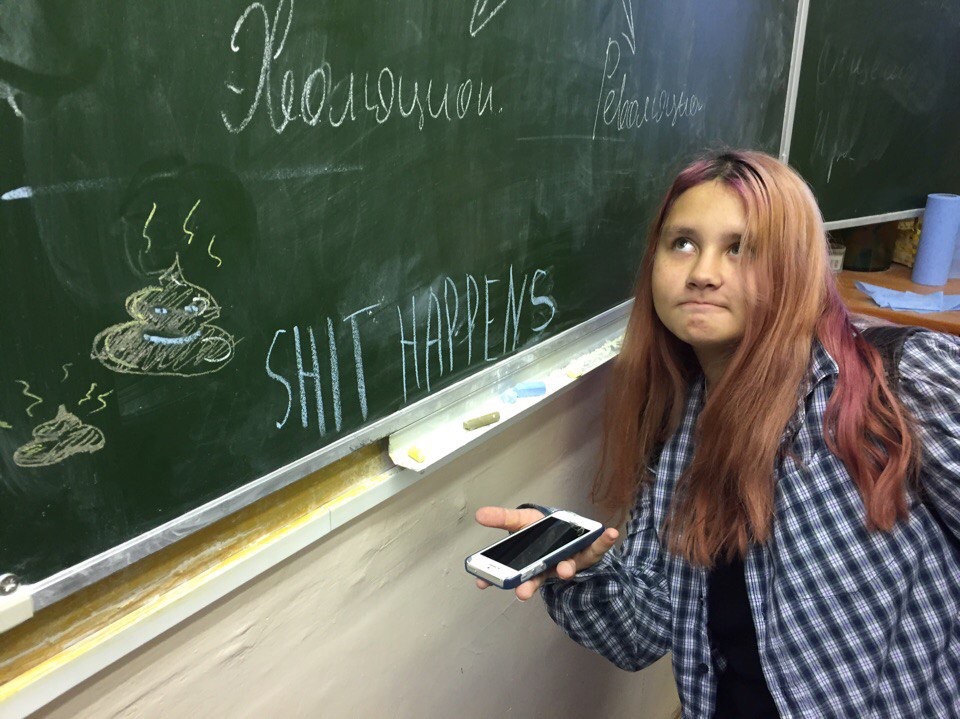 Эволюцион. Революцион
SHIT HAPPENS